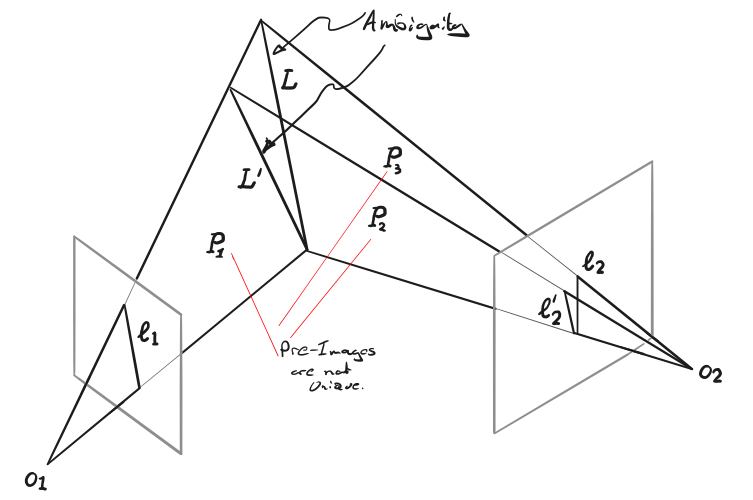 Ambiguity
L
P3
L'
P2
P1
l2
l1
l'2
Pre-Images
are not
Unique.
O2
O1